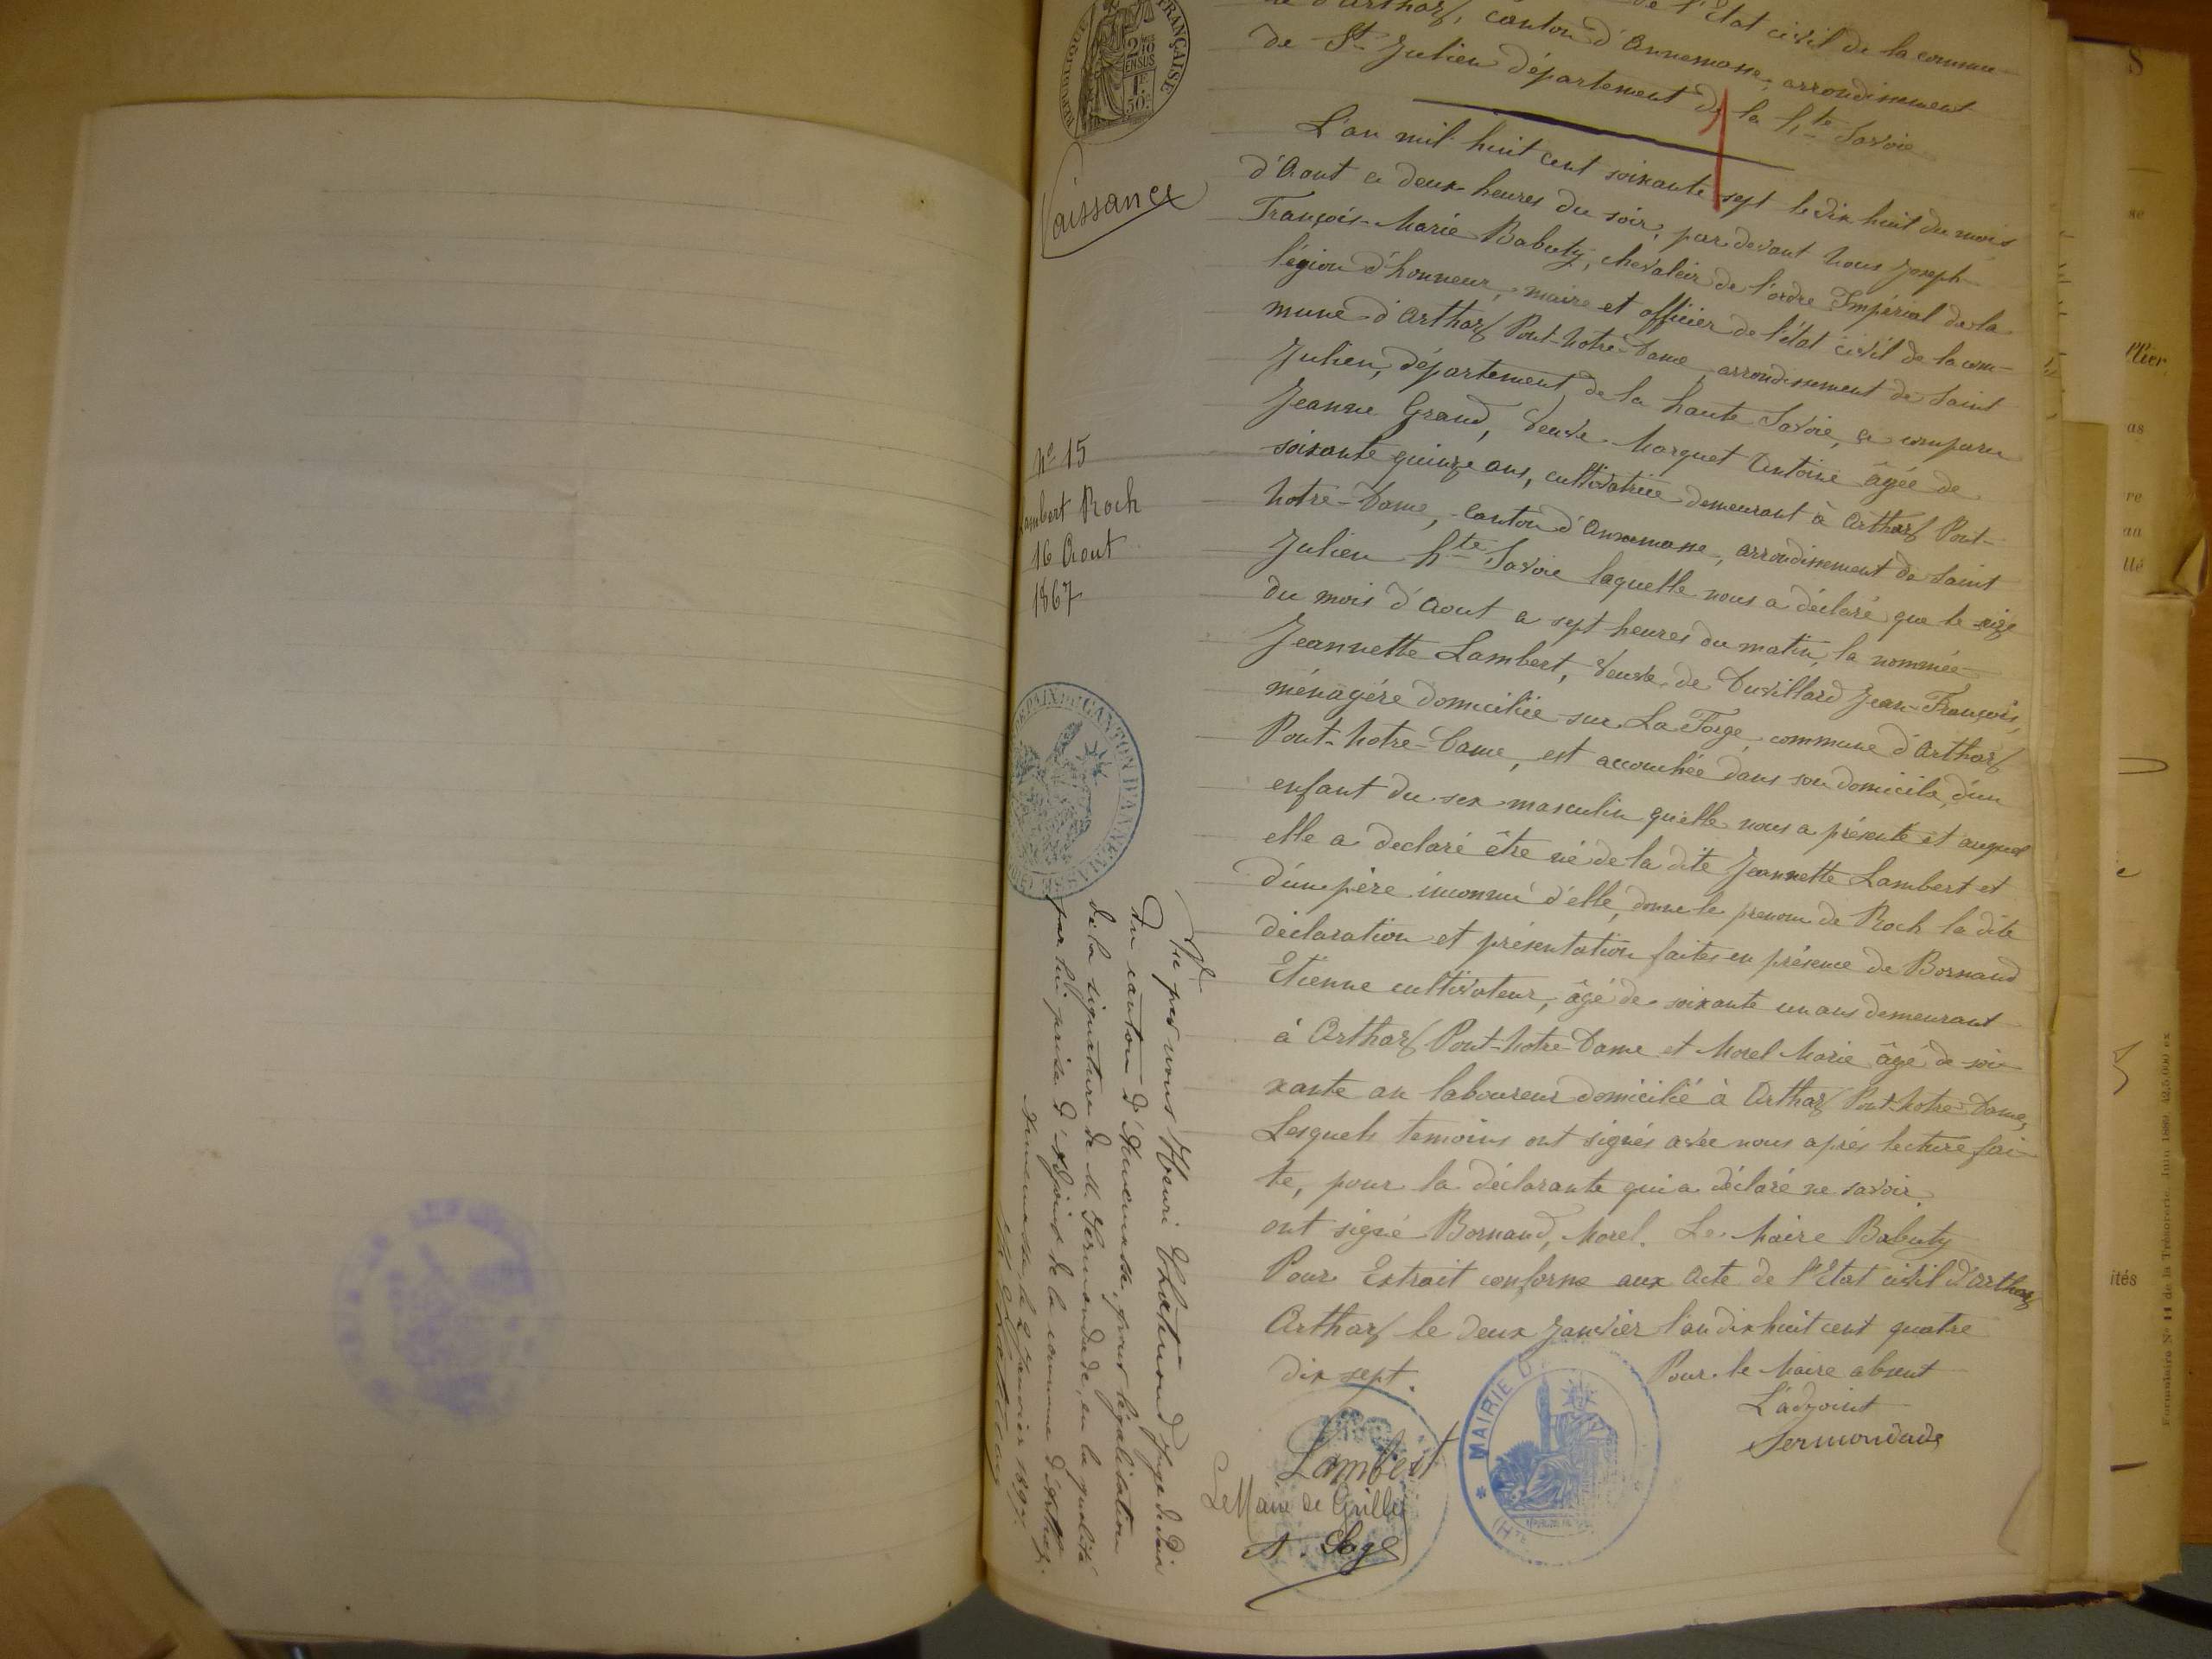 RÉPUBLIQUE FRANÇAISE
2/10
EN SUS
1F
50c
Naissance
de l'état civil de la commu-
ne d'Arthaz, canton d'Annemasse, arrondissement
de St Julien département de la hte Savoie
L'an mil huit cent soixante sept le dix huit du mois
d'Aout a deux heures du soir, par devant Nous Joseph
François-Marie Babuty, chevalier de l'ordre Impérial de la
légion d'honneur, maire et officier de l'état civil de la com-
mune d'Arthaz Pont-Notre-Dame, arrondissement de Saint
Julien, département de la haute Savoie, a comparu
Jeanne Grand, Veuve Marquet Antoine âgée de
soixante quinze ans, cultivatrice demeurant à Arthaz Pont-
Notre-Dame, canton d'Annemasse, arrondissement de Saint
Julien hte Savoie laquelle nous a déclaré que le seize
du mois d'Aout a sept heures du matin, la nommée
Jeannette Lambert, Veuve de Duvillard Jean-François,
ménagére domiciliée sur La Forge, commune d'Arthaz
Pont-Notre-Dame, est accouchée dans son domicile, d'un
enfant du sex masculin qu'elle nous a présenté et auquel
elle a declaré être né de la dite Jeannette Lambert et
d'un père inconnu d'elle, donne le prenom de Roch la dite
déclaration et présentation faites en présence de Bornand
Etienne cultivateur, âgé de soixante un ans demeurant
à Arthaz Pont-Notre-Dame et Morel Marie âgé de soi-
xante an laboureur domicilié à Arthaz Pont-Notre-Dame,
Lesquels temoins ont signés avec nous après lecture fai-
te, pour la déclarante qui a déclaré ne savoir.
ont signé Bornand, Morel. Le Maire Babuty
Pour Extrait conforme aux Acte de l'Etat civil d'Arthaz
Arthaz le deux Janvier l'an dix huit cent quatre
dix sept.
Pour le Maire absent
L'adjoint
Sermondade
MAIRIE D
(Hte
Lambert
Le Maire de Gaillard
No 15
Lambert Roch
16 Aout
1867
PAIX DU CANTON D'ANNEMASSE
Vu par nous Henri Chatrion Juge de Paix
du canton d'Annemasse, pour légalisation
de la signature de M. Sermondade, en la qualité
par lui prise d'adjoint de la commune d'Arthaz.
Annemasse, le 2 Janvier 1897.
Formulaire N° 11 de la Trésorerie. Juin 1889.
ités